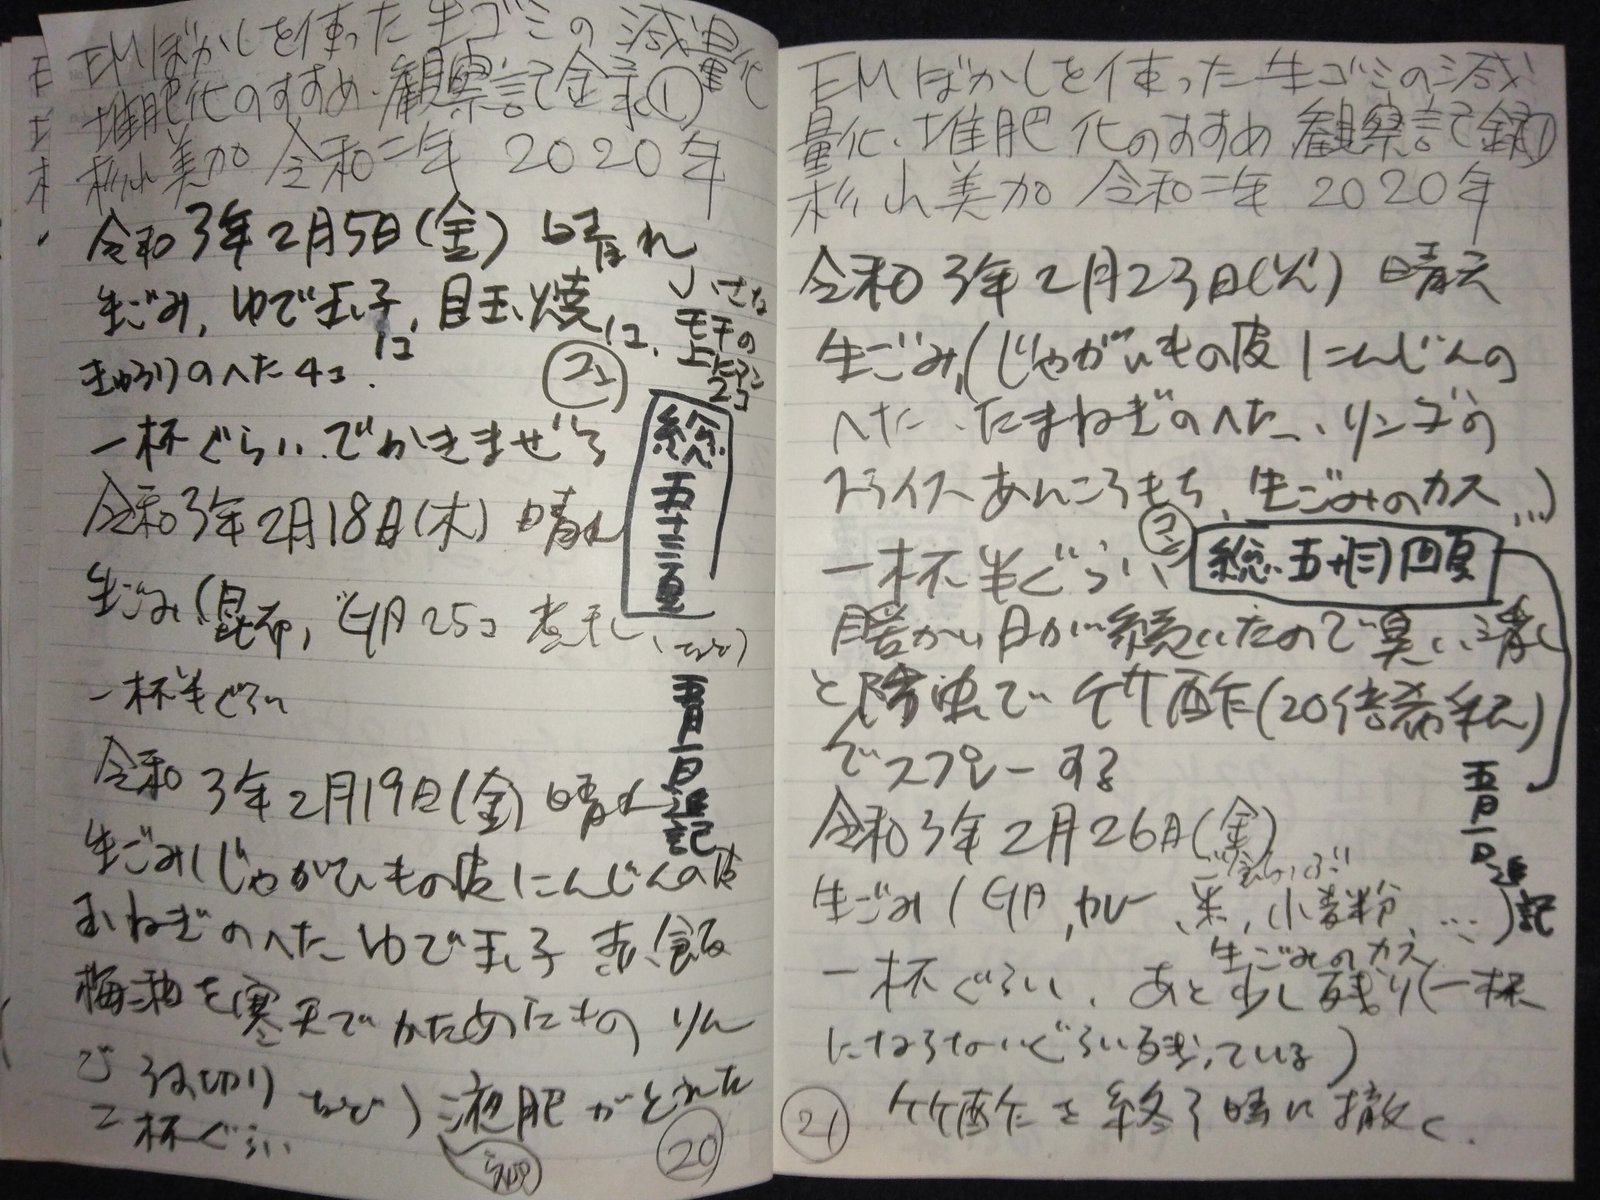 EMぼかしを使った生ゴミの減量化
堆肥化のすすめ・観察記録①
杉山美加 令和二年 2020年
令和3年2月5日(金) 晴れ
生ごみ, ゆで玉子, 目玉焼
1コ
1コ、
小さな
きゅうりのへた4コ.
一杯ぐらい.でかきまぜる
総五十三
令和3年2月18日(木) 晴れ
生ごみ(昆布, 卵25コ 煮干し、など)
一杯半ぐらい
五月一日追記
令和3年2月19日(金) 晴れ
生ごみ(じゃがいもの皮にんじんの皮
玉ねぎのへた ゆで玉子 赤飯
梅酒を寒天でかためたもの りん
ご うす切り など) 液肥がとれた
二杯ぐらい
20
EMぼかしを使った生ゴミの減
量化・堆肥化のすすめ 観察記録①
杉山美加 令和二年 2020年
令和3年2月23日(火) 晴天
生ごみ,(じゃがいもの皮 にんじんの
へた、たまねぎのへた、リンゴの
スライス あんころもち、生ごみのカス...)
一杯半ぐらい
総五十
暖かい日が続いたので臭い消し
と除虫で竹酢(20倍希釈)
でスプレーする
五月一日追記
令和3年2月26日(金)
生ごみ(卵,カレー、米,小麦粉、...)
生ごみのカス
一杯ぐらい、あと少し残り(一杯
にならないぐらい残っている)
竹酢を終了時に撒く.
21